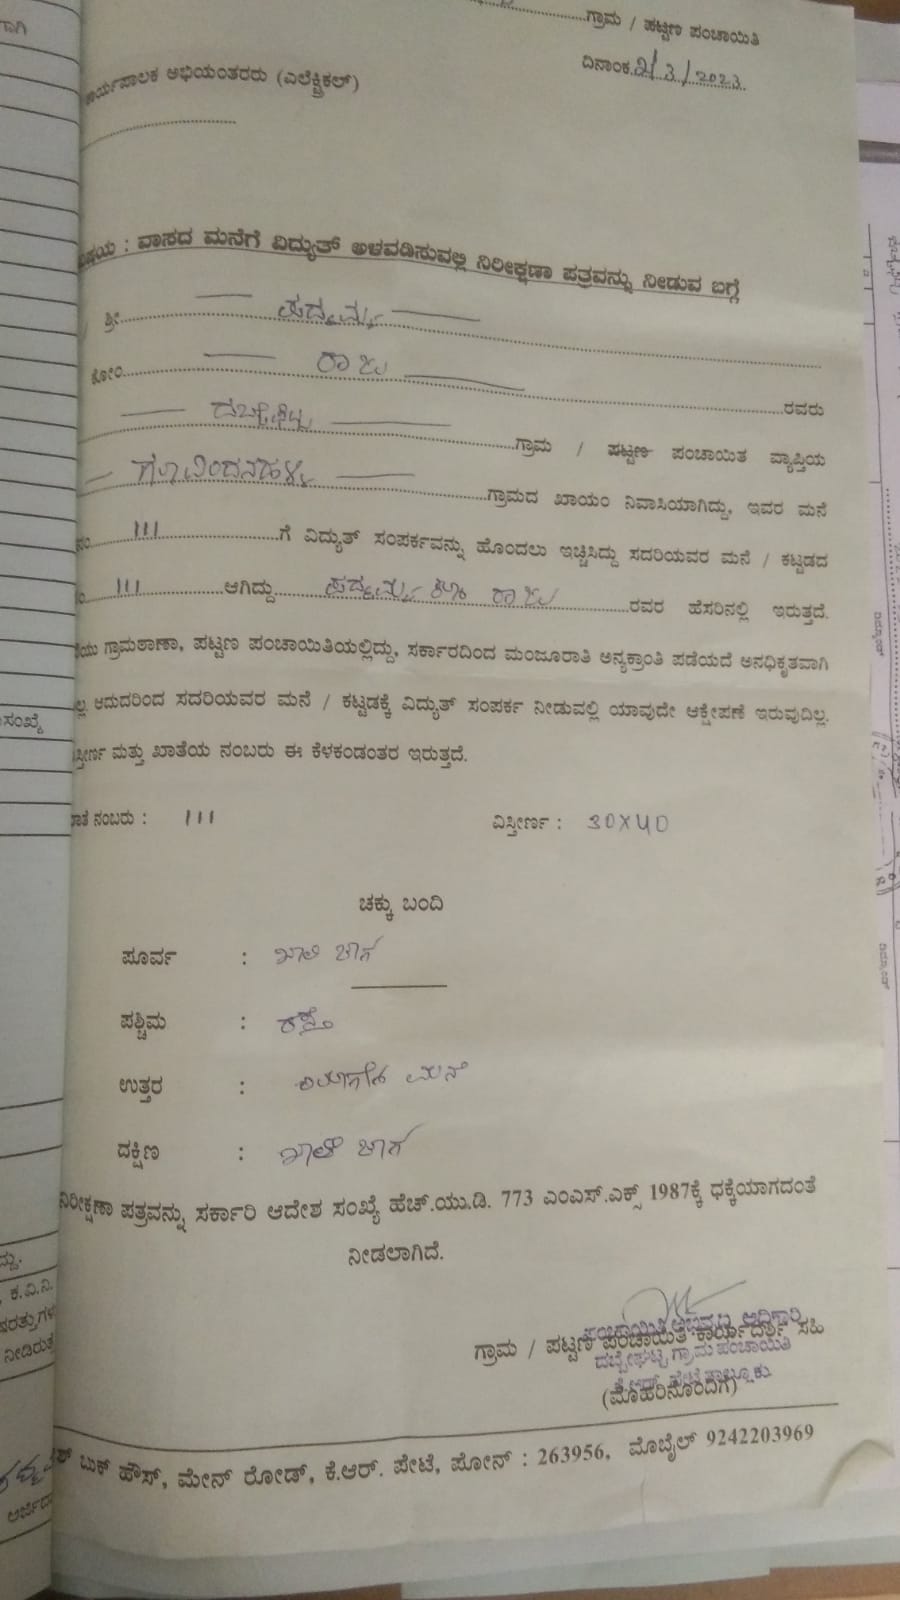 ಗ್ರಾಮ / ಪಟ್ಟಣ ಪಂಚಾಯಿತಿ
ದಿನಾಂಕ 2/3/2023
ಕಾರ್ಯಪಾಲಕ ಅಭಿಯಂತರರು (ಎಲೆಕ್ಟ್ರಿಕಲ್)
ವಿಷಯ : ವಾಸದ ಮನೆಗೆ ವಿದ್ಯುತ್ ಅಳವಡಿಸುವಲ್ಲಿ ನಿರೀಕ್ಷಣಾ ಪತ್ರವನ್ನು ನೀಡುವ ಬಗ್ಗೆ
ಶ್ರೀ ಪದ್ಮಮ್ಮ
ಕೋಂ ರಾಜು ರವರು
ದಬ್ಬೇಘಟ್ಟ ಗ್ರಾಮ / ಪಟ್ಟಣ ಪಂಚಾಯಿತ ವ್ಯಾಪ್ತಿಯ
ಗೋವಿಂದನಹಳ್ಳಿ ಗ್ರಾಮದ ಖಾಯಂ ನಿವಾಸಿಯಾಗಿದ್ದು, ಇವರ ಮನೆ
ನಂ 111 ಗೆ ವಿದ್ಯುತ್ ಸಂಪರ್ಕವನ್ನು ಹೊಂದಲು ಇಚ್ಚಿಸಿದ್ದು ಸದರಿಯವರ ಮನೆ / ಕಟ್ಟಡದ
ನಂ 111 ಆಗಿದ್ದು ಪದ್ಮಮ್ಮ ಕೋಂ ರಾಜು ರವರ ಹೆಸರಿನಲ್ಲಿ ಇರುತ್ತದೆ.
ಗ್ರಾಮಠಾಣಾ, ಪಟ್ಟಣ ಪಂಚಾಯಿತಿಯಲ್ಲಿದ್ದು, ಸರ್ಕಾರದಿಂದ ಮಂಜೂರಾತಿ ಅನ್ಯಕ್ರಾಂತಿ ಪಡೆಯದೆ ಅನಧಿಕೃತವಾಗಿ
ಆದುದರಿಂದ ಸದರಿಯವರ ಮನೆ / ಕಟ್ಟಡಕ್ಕೆ ವಿದ್ಯುತ್ ಸಂಪರ್ಕ ನೀಡುವಲ್ಲಿ ಯಾವುದೇ ಆಕ್ಷೇಪಣೆ ಇರುವುದಿಲ್ಲ.
ವಿಸ್ತೀರ್ಣ ಮತ್ತು ಖಾತೆಯ ನಂಬರು ಈ ಕೆಳಕಂಡಂತರ ಇರುತ್ತದೆ.
ಖಾತೆ ನಂಬರು : 111 ವಿಸ್ತೀರ್ಣ : 30X40
ಚಕ್ಕು ಬಂದಿ
ಪೂರ್ವ : ಖಾಲಿ ಜಾಗ
ಪಶ್ಚಿಮ : ರಸ್ತೆ
ಉತ್ತರ : ಮನೆ
ದಕ್ಷಿಣ : ಖಾಲಿ ಜಾಗ
ನಿರೀಕ್ಷಣಾ ಪತ್ರವನ್ನು ಸರ್ಕಾರಿ ಆದೇಶ ಸಂಖ್ಯೆ ಹೆಚ್.ಯು.ಡಿ. 773 ಎಂಎಸ್.ಎಕ್ಸ್ 1987ಕ್ಕೆ ಧಕ್ಕೆಯಾಗದಂತೆ
ನೀಡಲಾಗಿದೆ.
ಪಂಚಾಯಿತಿ ಅಭಿವೃದ್ಧಿ ಅಧಿಕಾರಿ
ಗ್ರಾಮ / ಪಟ್ಟಣ ಪಂಚಾಯಿತ ಕಾರ್ಯದರ್ಶಿ ಸಹಿ
ದಬ್ಬೇಘಟ್ಟ ಗ್ರಾಮ ಪಂಚಾಯಿತಿ
ಕೆ.ಆರ್. ಪೇಟೆ ತಾಲ್ಲೂಕು
(ಮೊಹರಿನೊಂದಿಗೆ)
ಬುಕ್ ಹೌಸ್, ಮೇನ್ ರೋಡ್, ಕೆ.ಆರ್. ಪೇಟೆ, ಪೋನ್ : 263956, ಮೊಬೈಲ್ 9242203969